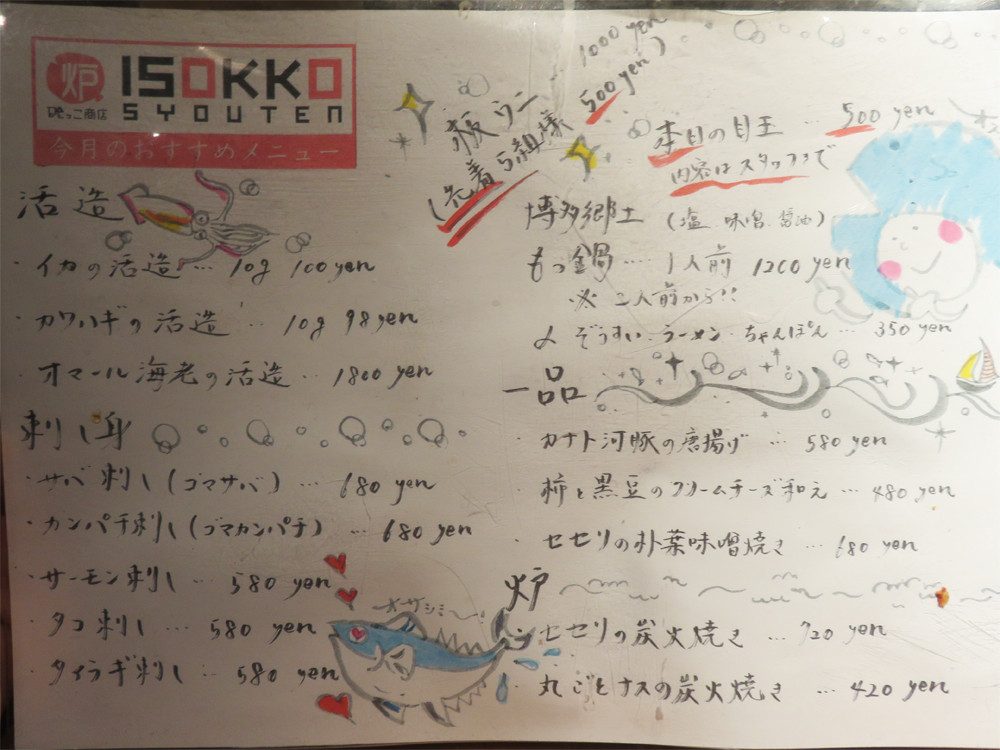 炉
ISOKKO
SYOUTEN
磯っこ商店
今月のおすすめメニュー
活造
・イカの活造 … 10g 100yen
・カワハギの活造 … 10g 98yen
・オマール海老の活造 … 1800yen
刺し身
・サバ刺し(ゴマサバ) … 680 yen
・カンパチ刺し(ゴマカンパチ) … 680 yen
・サーモン刺し … 580 yen
・タコ刺し … 580 yen
・タイラギ刺し … 580 yen
オサシミ〜
板ウニ
(先着5組様
1000 yen
500 yen)
本日の目玉 … 500 yen
内容はスタッフまで
博多郷土 (塩、味噌、醤油)
もつ鍋 … 1人前 1200 yen
※ 二人前から!!
〆 ぞうすい・ラーメン・ちゃんぽん … 350 yen
一品
・カナト河豚の唐揚げ … 580 yen
・柿と黒豆のクリームチーズ和え … 480 yen
・セセリの朴葉味噌焼き … 680 yen
炉
・セセリの炭火焼き … 720 yen
・丸ごとナスの炭火焼き … 420 yen